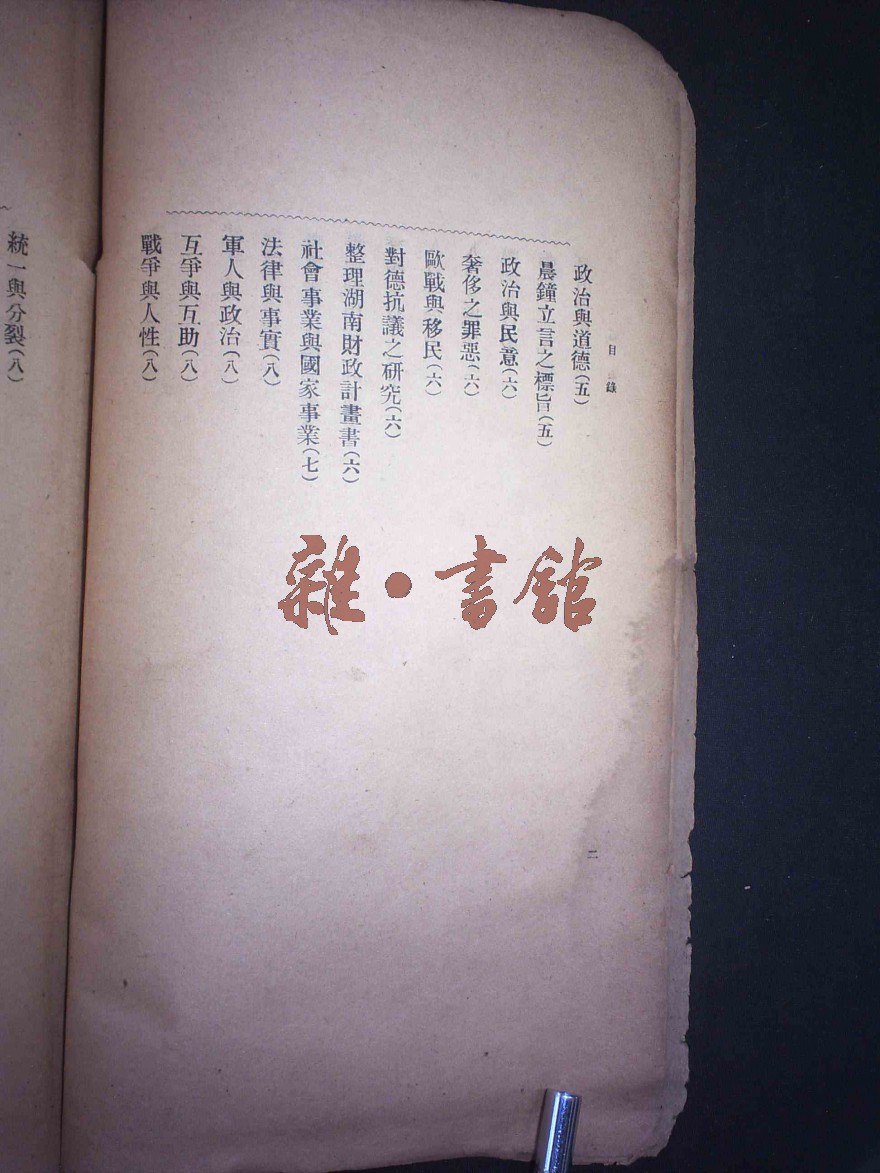 目錄
政治與道德(五)
晨鐘立言之標旨(五)
政治與民意(六)
奢侈之罪惡(六)
歐戰與移民(六)
對德抗議之研究(六)
整理湖南財政計畫書(六)
社會事業與國家事業(七)
法律與事實(八)
軍人與政治(八)
互爭與互助(八)
戰爭與人性(八)
二
統一與分裂(八)
雜·書館